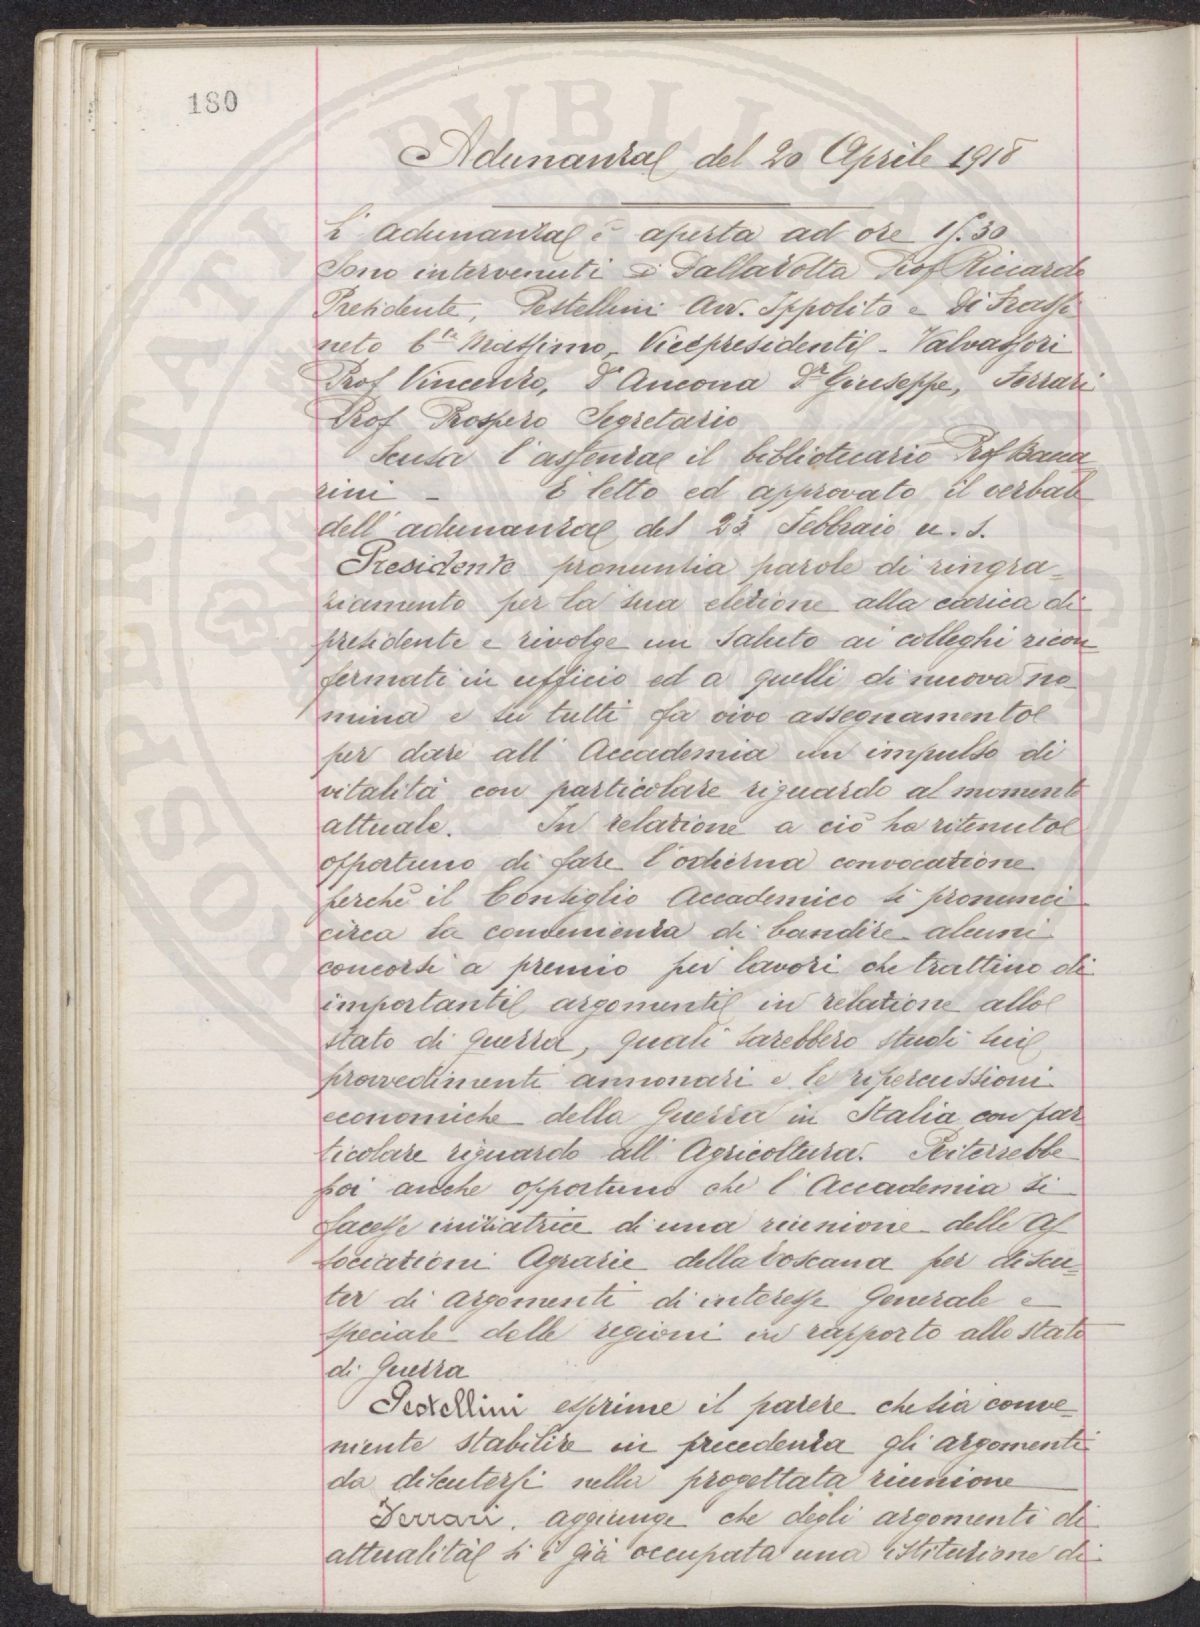 180
Adunanza del 20 Aprile 1918
L' adunanza è aperta ad ore 15.30
Sono intervenuti i Dalla Volta Prof Riccardo
Presidente, Pestellini Avv. Ippolito e Di Frassi
neto Cte Massimo, Vicepresidenti - Valvassori
Prof Vincenzo, D'Ancona Dr Giuseppe, Ferrari
Prof Prospero Segretario
Scusa l'assenza il bibliotecario Prof Bacca
rini - È letto ed approvato il verbale
dell' adunanza del 23 Febbraio u. s.
Presidente pronunzia parole di ringra-
ziamento per la sua elezione alla carica di
presidente e rivolge un saluto ai colleghi ricon
fermati in ufficio ed a quelli di nuova no-
mina e su tutti fa vivo assegnamento
per dare all' Accademia un impulso di
vitalità con particolare riguardo al momento
attuale. In relazione a ciò ha ritenuto
opportuno di fare l'odierna convocazione
perchè il Consiglio Accademico si pronunci
circa la convenienza di bandire alcuni
concorsi a premio per lavori che trattino di
importanti argomenti in relazione allo
stato di guerra, quali sarebbero studi sui
provvedimenti annonari e le ripercussioni
economiche della Guerra in Italia con par
ticolare riguardo all' Agricoltura. Riterrebbe
poi anche opportuno che l'Accademia si
facesse iniziatrice di una riunione delle As
sociazioni Agrarie della Toscana per discu-
ter di argomenti di interesse Generale e
speciale delle regioni in rapporto allo stato
di Guerra
Pestellini esprime il parere che sia conve-
niente stabilire in precedenza gli argomenti
da discutersi nella progettata riunione
Ferrari. aggiunge che degli argomenti di
attualità si è già occupata una istituzione di
PROSPERITATI PUBLICAE